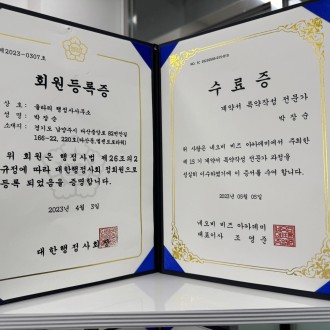 제2023-0307호
회원등록증
상 호: 울타리 행정사사무소
성 명: 박장순
소재지: 경기도 남양주시 다산중앙로 82번안길
166-22, 220호(다산동,
위 회원은 행정사법 제26조의2
규정에 따라 대한행정사회 정회원으로
등록 되었음을 증명합니다.
2023년 4월 3일
대한행정사회장
수료증
계약서 특약작성 전문가
박 장 순
위 사람은 네오비 비즈 아카데미에서 주최한
제 15 기 계약서 특약작성 전문가 과정을
성실히 이수하였기에 이 증서를 수여 합니다.
2023년 05월 05일
네오비 비즈 아카데미
대표이사 조 영 준